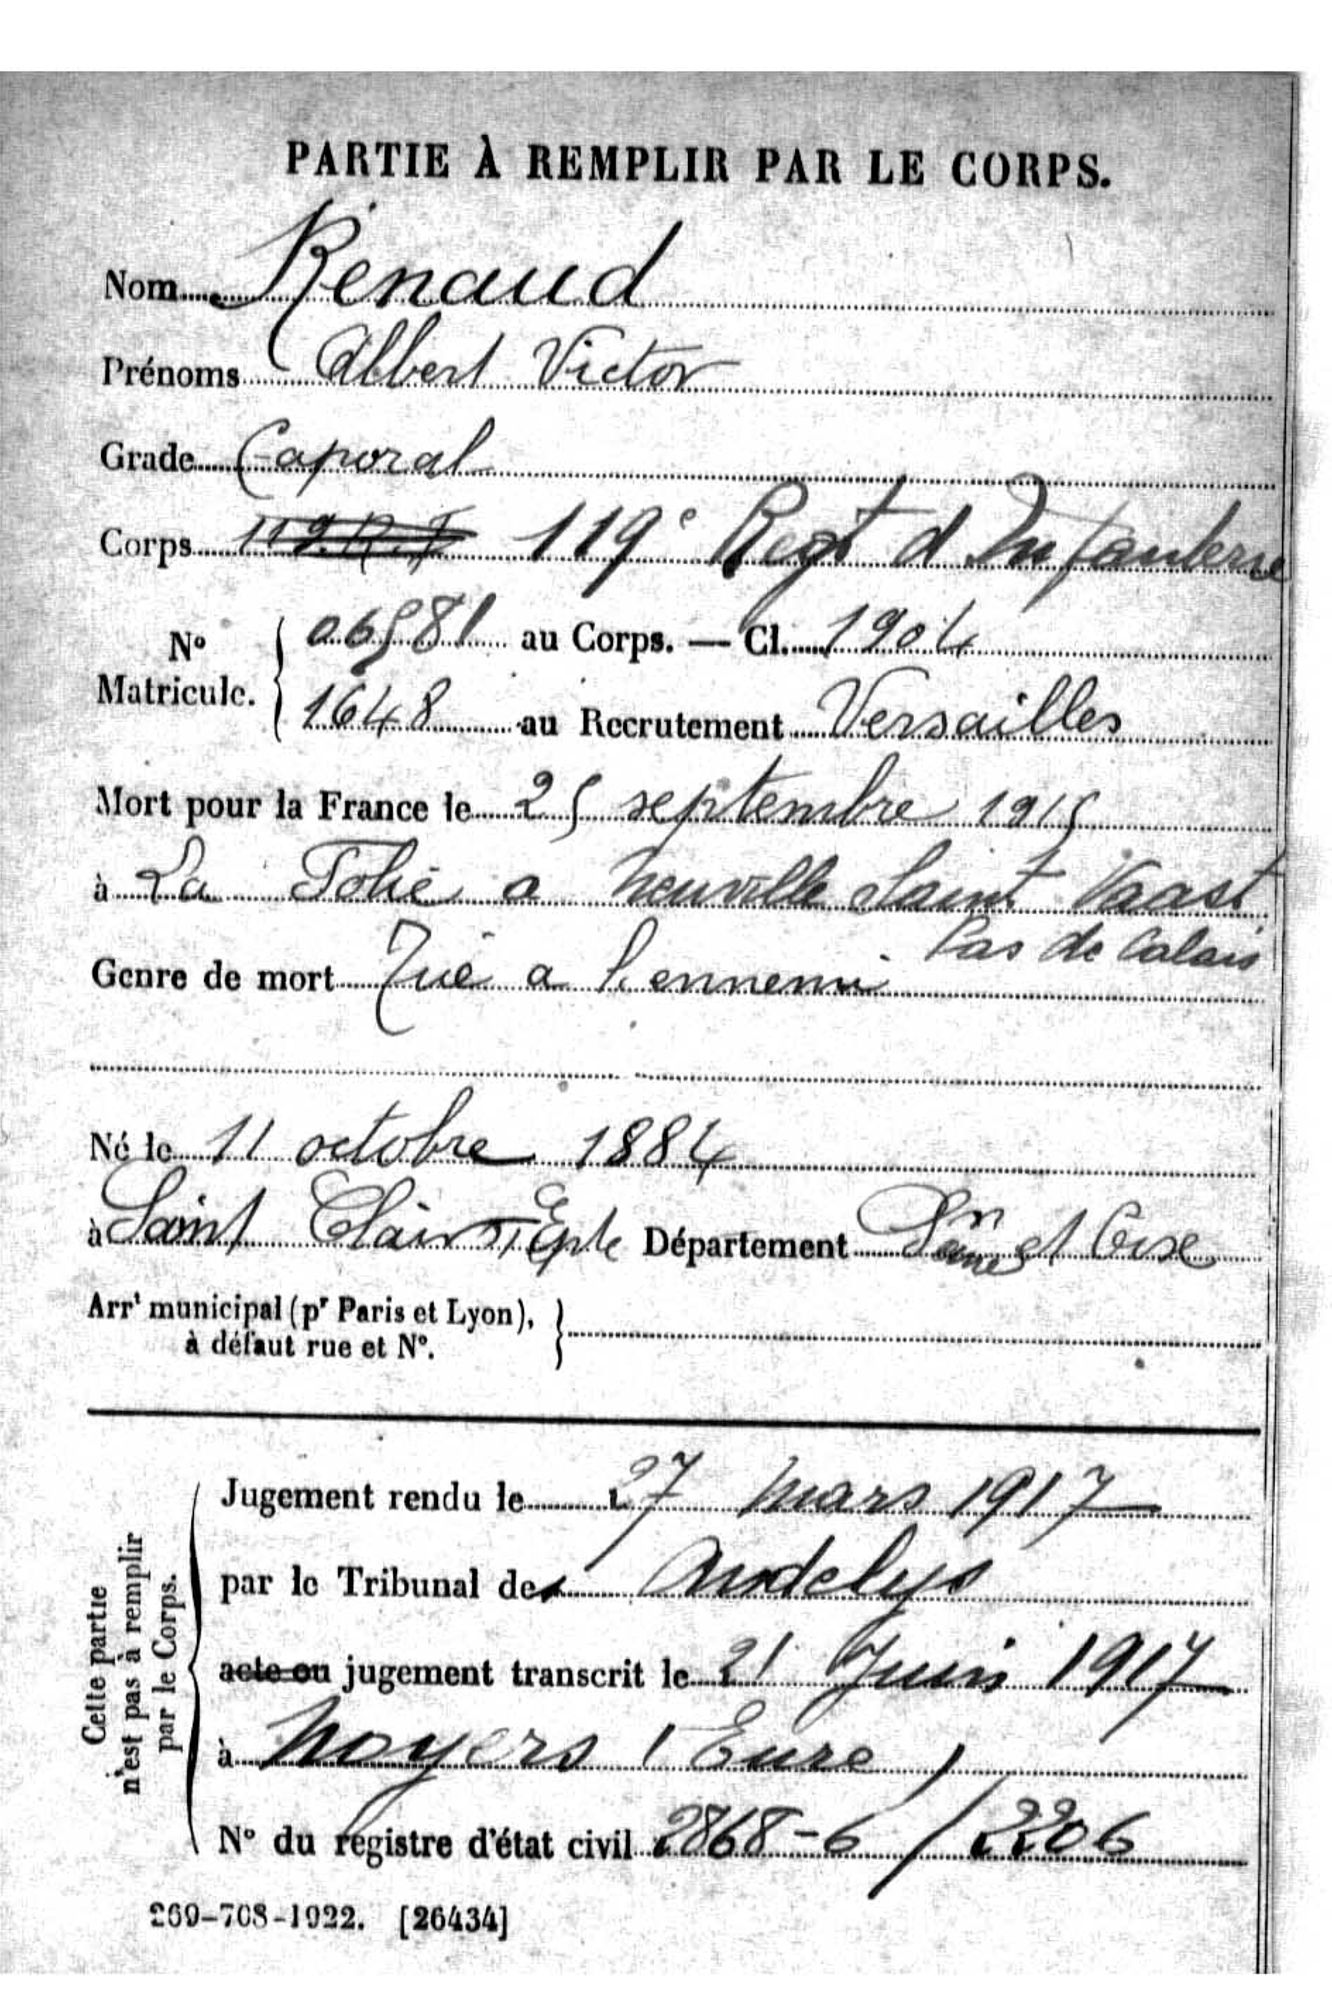 PARTIE À REMPLIR PAR LE CORPS.
Nom Renaud
Prénoms Albert Victor
Grade Caporal
Corps 119 R.I 119e Regt d Infanterie
No Matricule. { 06581 au Corps. — Cl. 1904
1648 au Recrutement Versailles
Mort pour la France le 25 septembre 1915
à La Folie a Neuville Saint Vaast
Pas de Calais
Genre de mort Tué a l'ennemi
Né le 11 octobre 1884
à Saint Clair s/ Epte Département Seine et Oise
Arrt municipal (pr Paris et Lyon),
à défaut rue et No. }
Cette partie
n'est pas à remplir
par le Corps.
Jugement rendu le 27 mars 1917
par le Tribunal des Andelys
acte ou jugement transcrit le 21 Juin 1917
à Noyers (Eure)
No du registre d'état civil 2868-6 / 2206
269-708-1922. [26434]